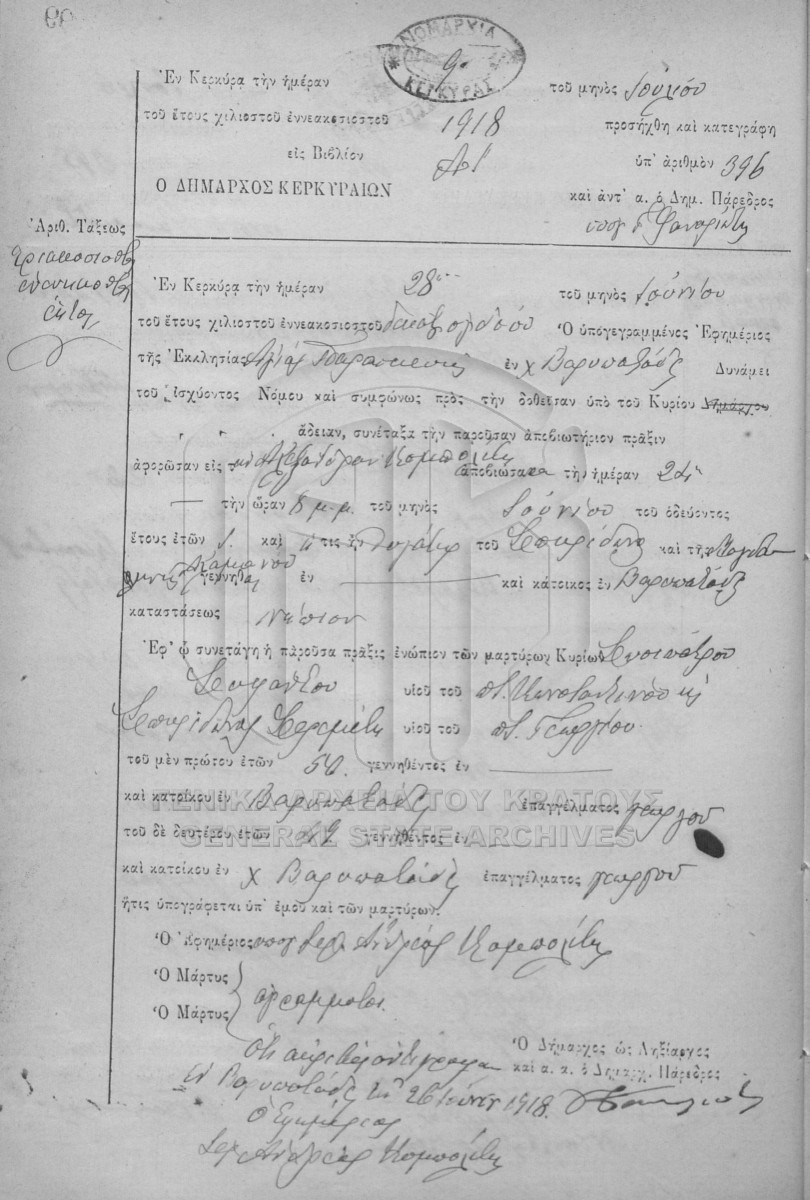 ΝΟΜΑΡΧΙΑ
ΚΕΡΚΥΡΑΣ
Ἐν Κερκύρᾳ τὴν ἡμέραν 9 τοῦ μηνὸς Ἰουλίου
τοῦ ἔτους χιλιοστοῦ ἐννεακοσιοστοῦ 1918 προσήχθη καὶ κατεγράφη
εἰς Βιβλίον Α1 ὑπ' ἀριθμὸν 396
Ο ΔΗΜΑΡΧΟΣ ΚΕΡΚΥΡΑΙΩΝ καὶ ἀντ' α. ὁ Δημ. Πάρεδρος
Ἀριθ. Τάξεως
Ἐν Κερκύρᾳ τὴν ἡμέραν 28 τοῦ μηνὸς Ἰουνίου
τοῦ ἔτους χιλιοστοῦ ἐννεακοσιοστοῦ Ὁ ὑπογεγραμμένος Ἐφημέριος
τῆς Ἐκκλησίας Ἁγίας Παρασκευῆς ἐν χ Βαρυπατάδες Δυνάμει
τοῦ ἰσχύοντος Νόμου καὶ συμφώνως πρὸς τὴν δοθεῖσαν ὑπὸ τοῦ Κυρίου Δημάρχου
ἄδειαν, συνέταξα τὴν παροῦσαν ἀποβιωτήριον πρᾶξιν
ἀφορῶσαν εἰς τὴν Ἀλεξάνδραν Κομπολίτη ἀποβιώσασα τὴν ἡμέραν
τὴν ὥραν 8 μ.μ. τοῦ μηνὸς Ἰουνίου τοῦ ὁδεύοντος
ἔτους ἐτῶν καὶ τις ἦν θυγάτηρ τοῦ Σπυρίδωνος καὶ τῆς
γεννηθ ἐν καὶ κάτοικος ἐν Βαρυπατάδες
καταστάσεως νήπιον
Ἐφ' ᾧ συνετάγη ἡ παροῦσα πρᾶξις ἐνώπιον τῶν μαρτύρων Κυρίων
υἱοῦ τοῦ π. Κωνσταντίνου κ
Σπυρίδωνος υἱοῦ τοῦ π. Γεωργίου
τοῦ μὲν πρώτου ἐτῶν 50 γεννηθέντος ἐν
καὶ κατοίκου ἐν Βαρυπατάδες ἐπαγγέλματος γεωργοῦ
ΓΕΝΙΚΑ ΑΡΧΕΙΑ ΤΟΥ ΚΡΑΤΟΥΣ
τοῦ δὲ δευτέρου ἐτῶν γεννηθέντος ἐν
GENERAL STATE ARCHIVES
καὶ κατοίκου ἐν χ Βαρυπατάδες ἐπαγγέλματος γεωργοῦ
ἥτις ὑπογράφεται ὑπ' ἐμοῦ καὶ τῶν μαρτύρων.
Ὁ Ἐφημέριος υπογ Ἱερ Ἀνδρέας Κομπολίτης
Ὁ Μάρτυς
Ὁ Μάρτυς ἀγράμματοι
Ὁ Δήμαρχος ὡς Ληξίαρχος
Ὅτι ἀκριβὲς ἀντίγραφον καὶ α. α. ὁ Δημαρχ. Πάρεδρος
Ἐν Βαρυπατάδες τῇ 26 Ἰουνίου 1918.
Ὁ Ἐφημέριος
Ἱερ Ἀνδρέας Κομπολίτης